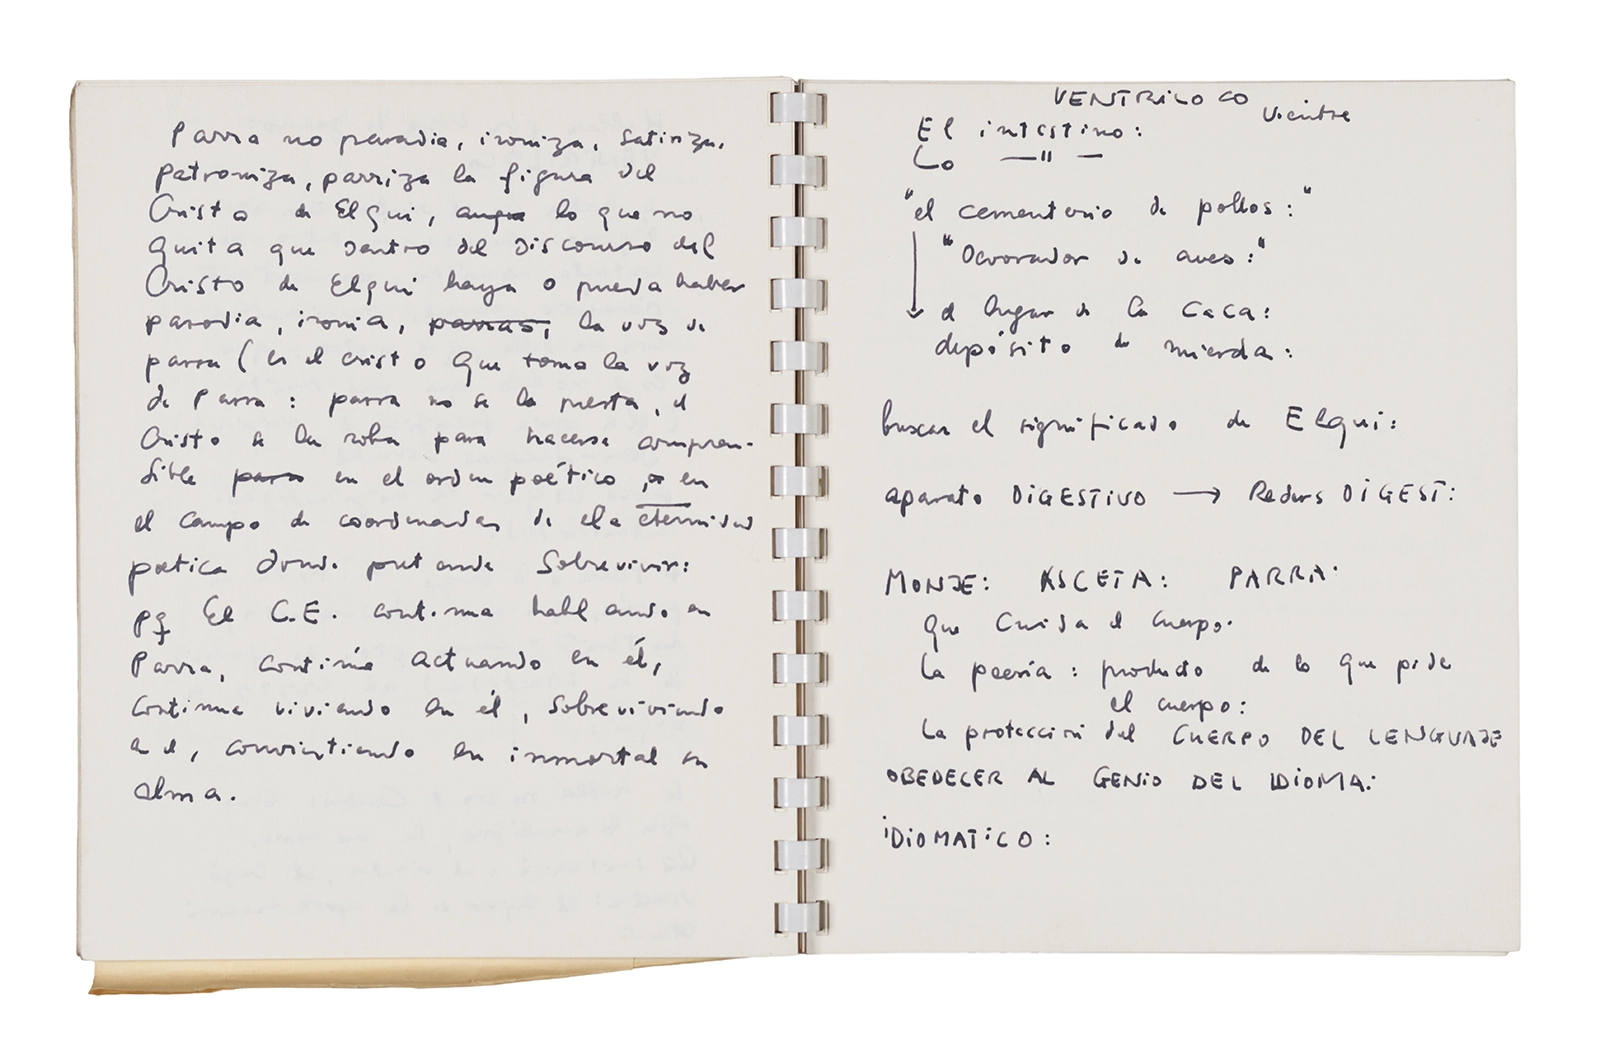 Parra no parodia, ironiza, satiriza,
patroniza, parriza la figura del
Cristo de Elqui, aunque lo que no
quita que dentro del Discurso del
Cristo de Elqui haya o pueda haber
parodia, ironia, parras, la voz de
parra (es el cristo que toma la voz
de Parra: parra no se la presta, el
Cristo se la roba para hacerse compren-
sible para en el orden poético, o en
el campo de coordenadas de ela eternidad
poetica donde pretende Sobrevivir:
pq El C.E. continua hablando en
Parra, continúa actuando en él,
continua viviendo en él, sobreviviendo
a el, convirtiendo en inmortal su
alma.
VENTRILOCO
Vientre
El intestino:
Lo — " —
"el cementerio de pollos:"
"Devorador de aves:"
el lugar de la caca:
depósito de mierda:
buscar el significado de Elqui:
aparato DIGESTIVO → Reders DIGEST:
MONJE: ASCETA: PARRA.
que cuida el cuerpo.
La poesía: producto de lo que pide
el cuerpo:
La protección del CUERPO DEL LENGUAJE
OBEDECER AL GENIO DEL IDIOMA:
iDiOMATiCO: